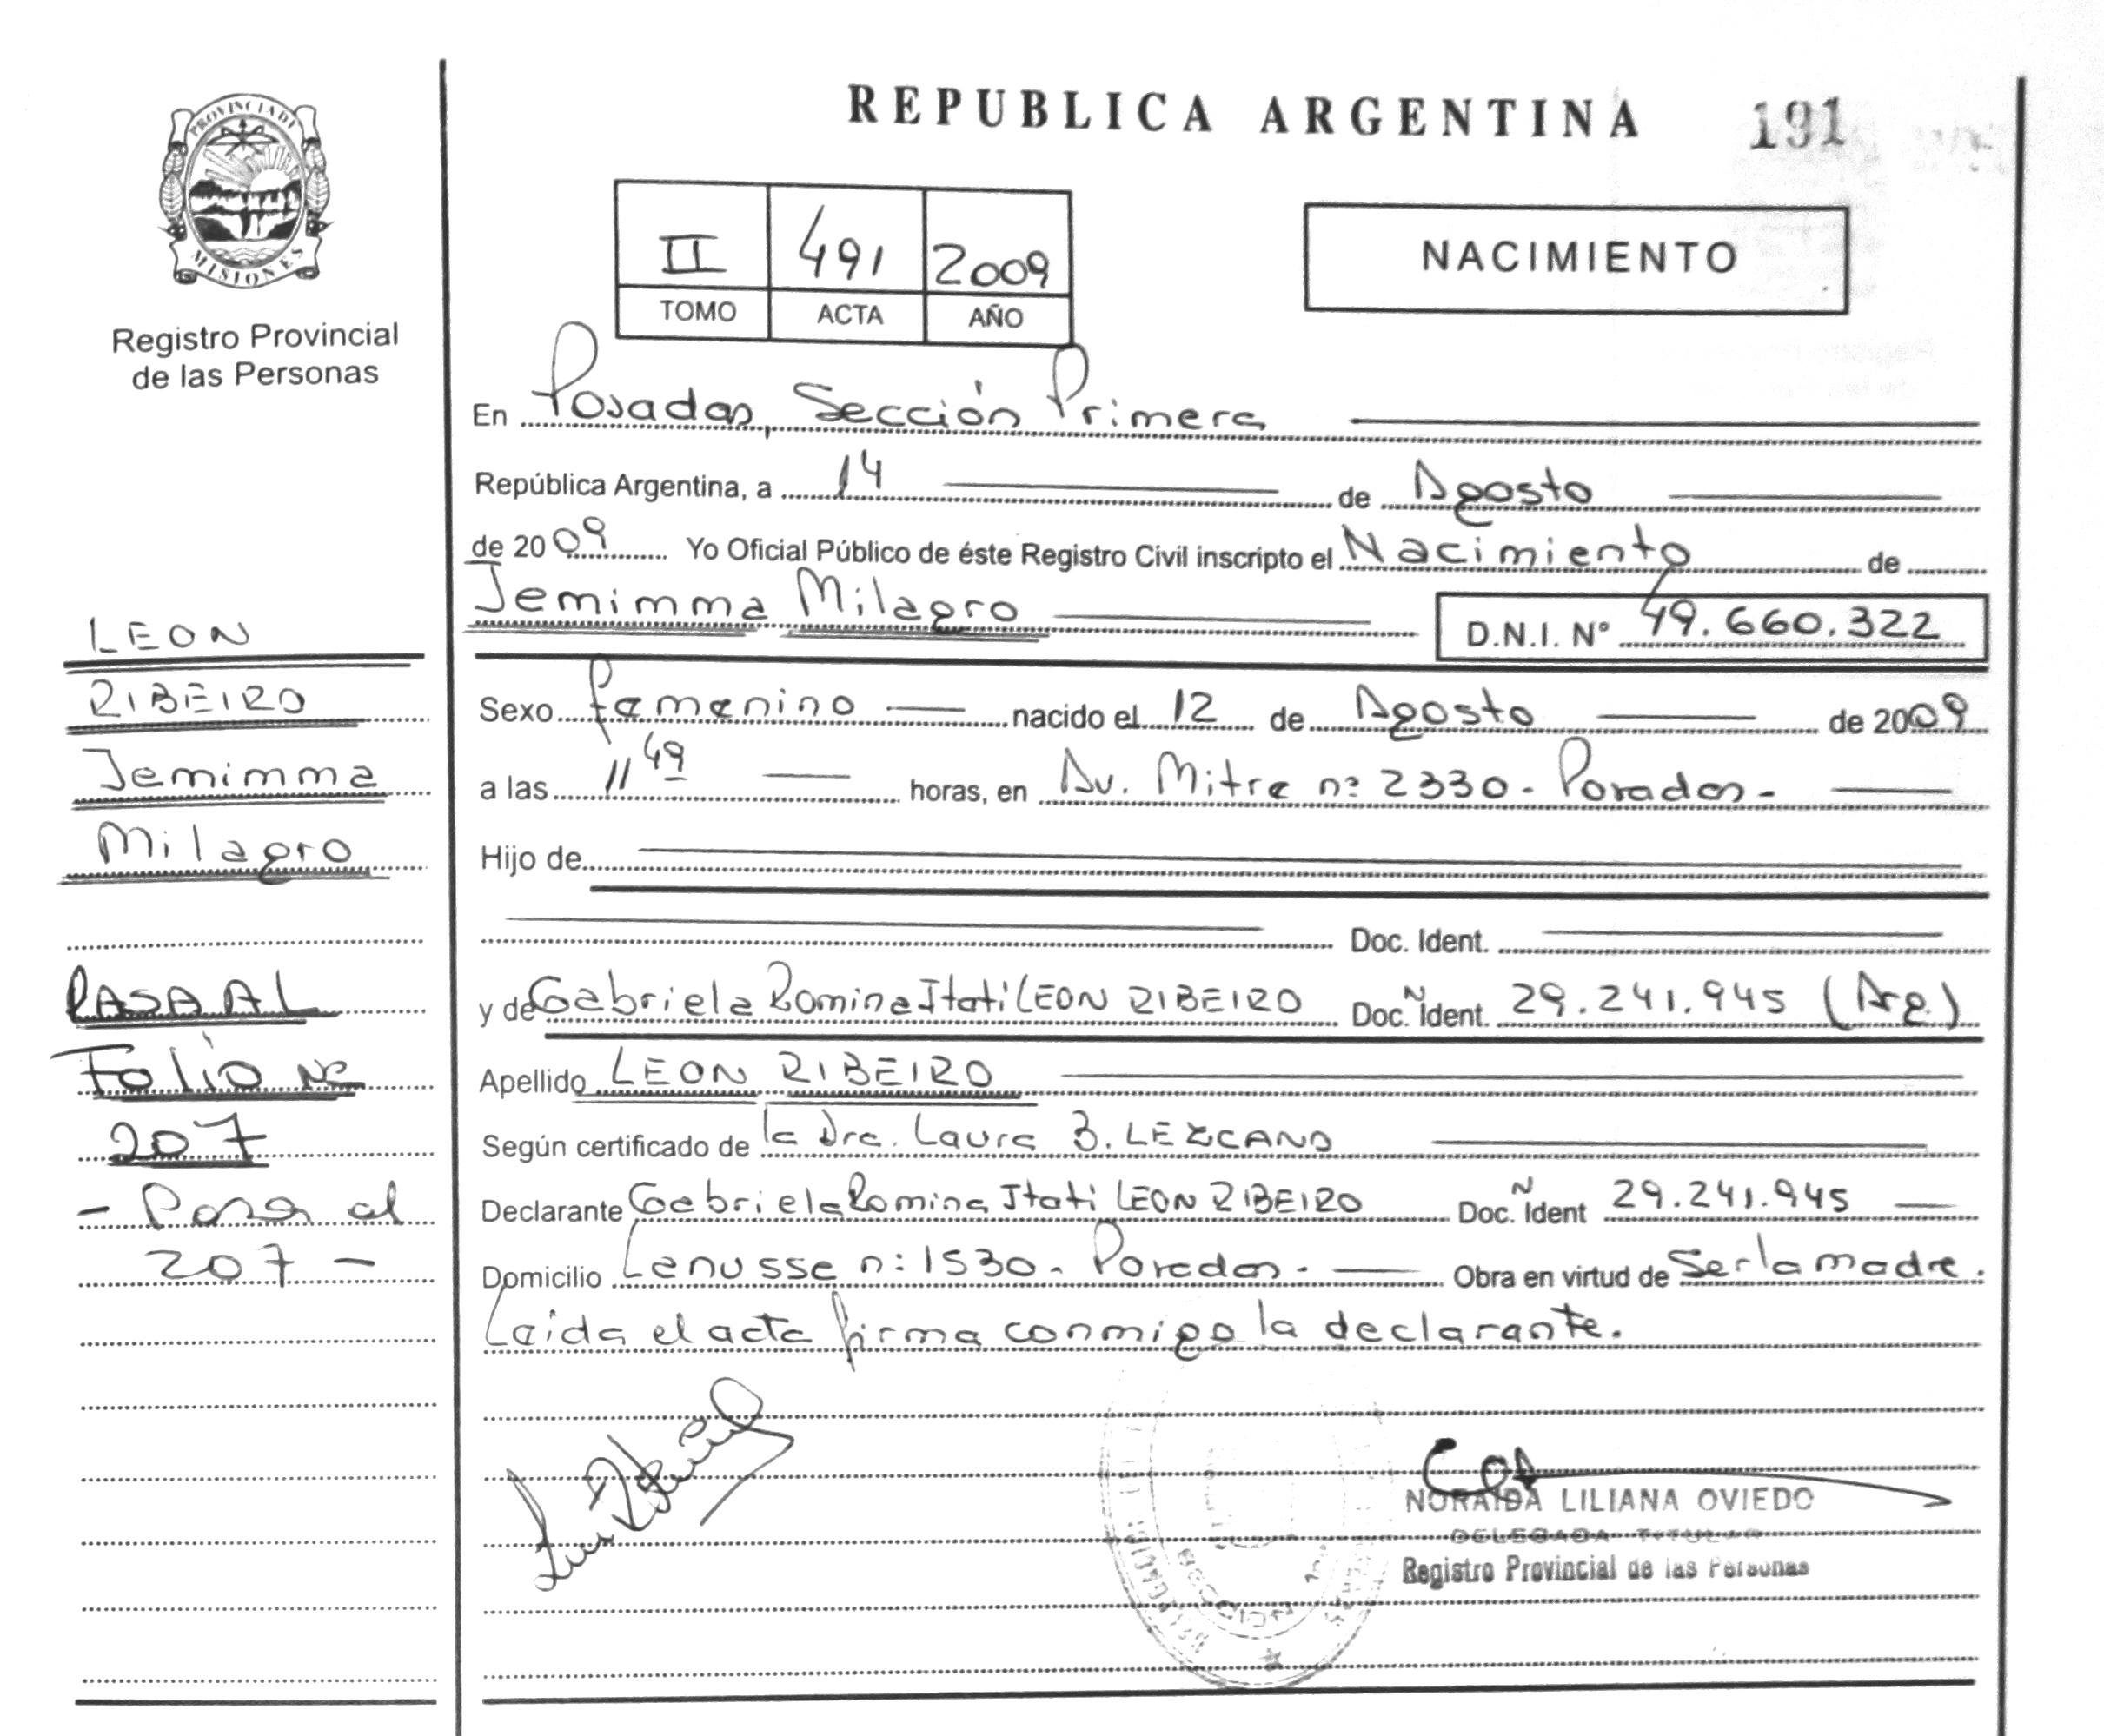 PROVINCIA DE
MISIONES
Registro Provincial
de las Personas
REPUBLICA ARGENTINA 191
II 491 2009
TOMO ACTA AÑO
NACIMIENTO
En Posadas, Sección Primera
República Argentina, a 14 de Agosto
de 2009 Yo Oficial Público de éste Registro Civil inscripto el Nacimiento de
Jemimma Milagro D.N.I. Nº 49.660.322
Sexo Femenino nacido el 12 de Agosto de 2009
a las 11 49 horas, en Av. Mitre nº 2330 - Posadas -
Hijo de
Doc. Ident.
y de Gabriela Romina Itati LEON RIBEIRO Doc. N Ident. 29.241.945 (Arg.)
Apellido LEON RIBEIRO
Según certificado de la Dra. Laura B. LEZCANO
Declarante Gabriela Romina Itati LEON RIBEIRO Doc. N Ident 29.241.945
Domicilio Lanusse nº 1530 - Posadas - Obra en virtud de Ser la madre.
Leida el acta firma conmigo la declarante.
NORAIDA LILIANA OVIEDO
DELEGADA TITULAR
Registro Provincial de las Personas
LEON
RIBEIRO
Jemimma
Milagro
PASA AL
Folio Nº
207
- Pasa al
207 -